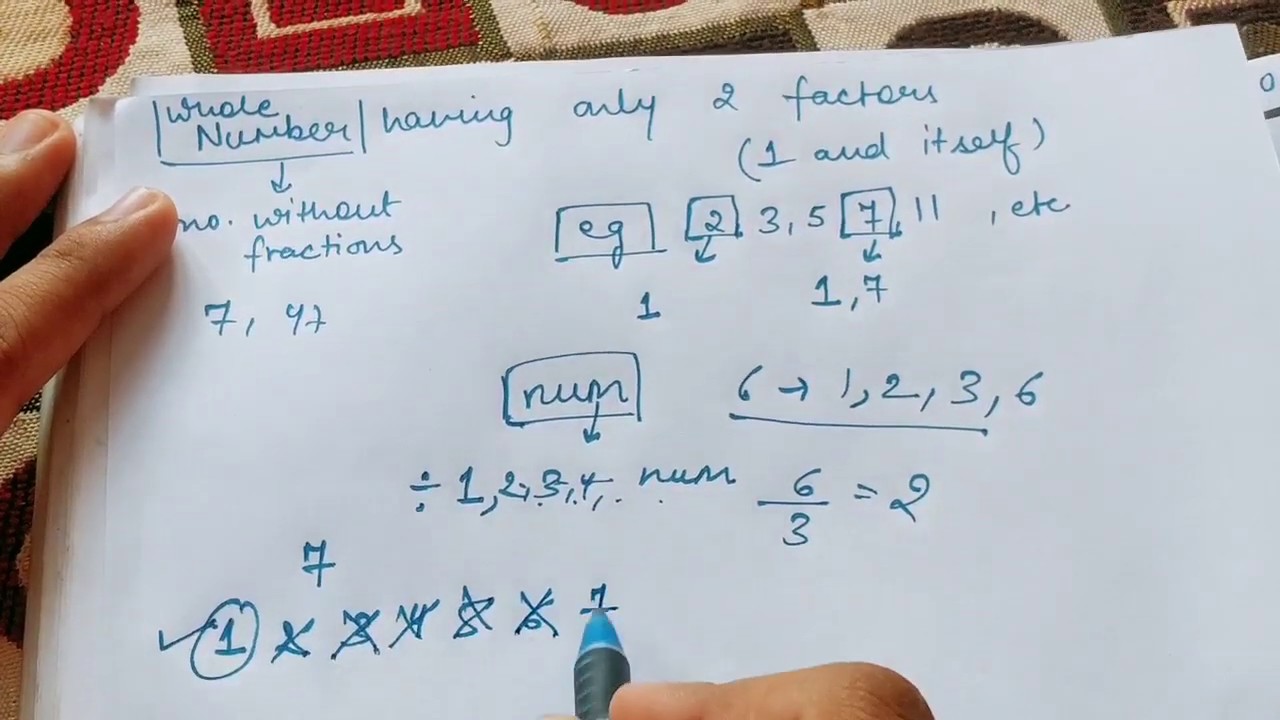 Whole Number having only 2 factors
(1 and itself)
no. without fractions
eg 2 3, 5 7, 11 , etc
7, 47
1
1, 7
num
6 → 1, 2, 3, 6
÷ 1, 2, 3, 4, . . num
6/3 = 2
7
1 2 3 4 5 6 7